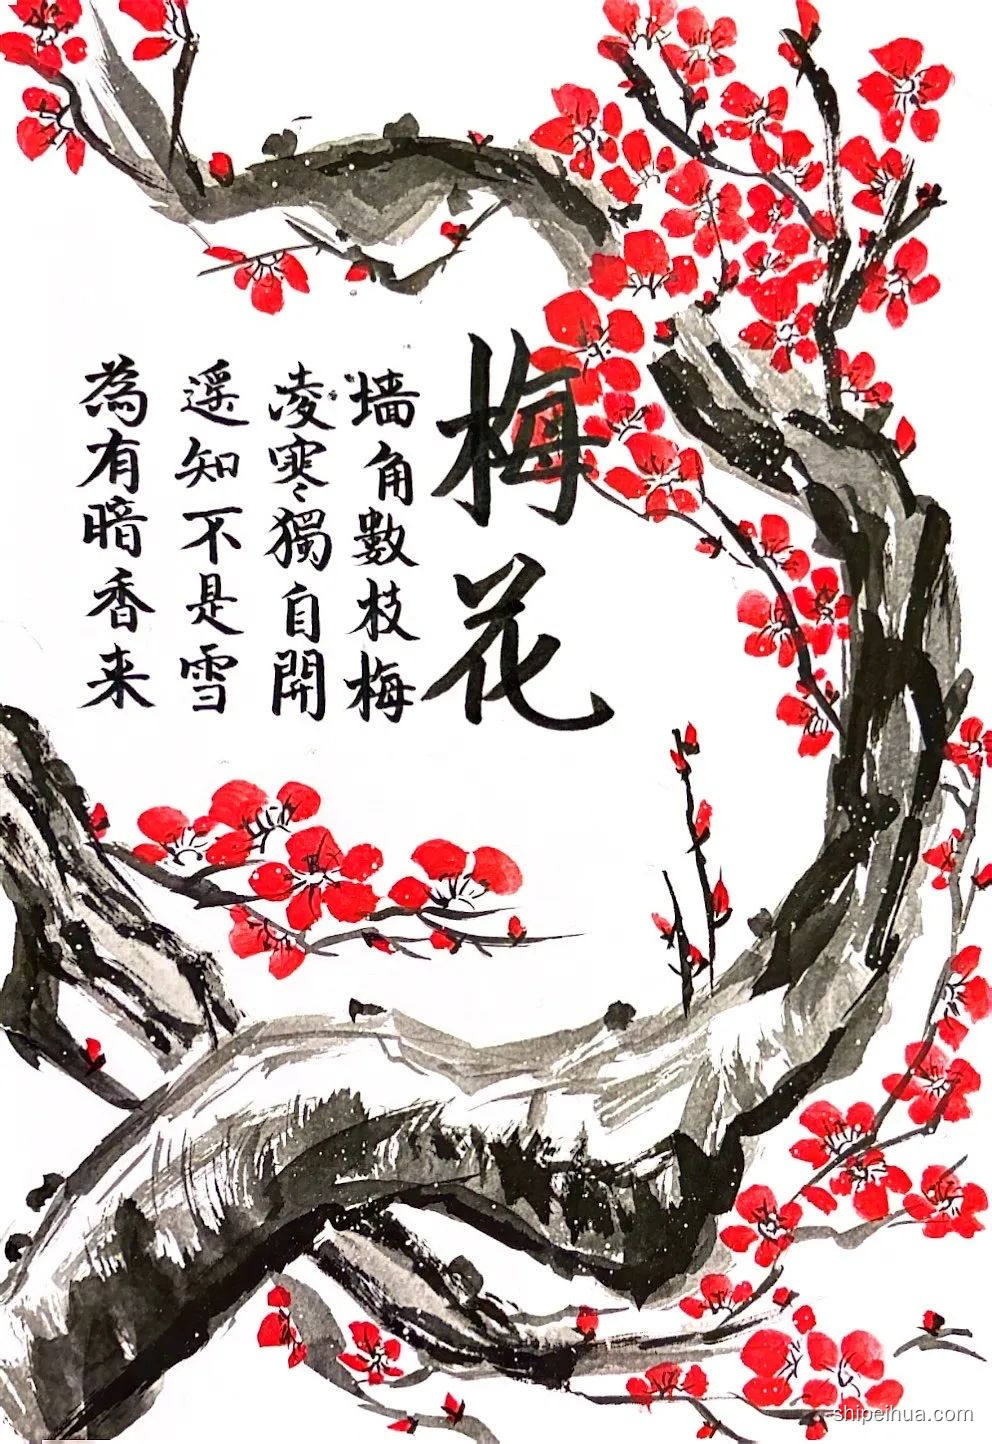 梅花
墙角數枝梅
凌寒獨自開
遥知不是雪
為有暗香来
shipeihua.com